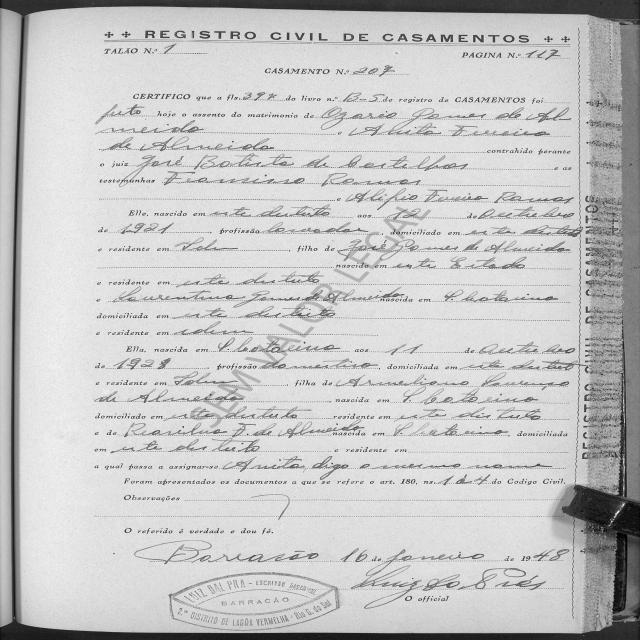 REGISTRO CIVIL DE CASAMENTOS
TALÃO N.º 1 PAGINA N.º 117
CASAMENTO N.º 207
CERTIFICO que a fls. 397 do livro n.º B-5 de registro de CASAMENTOS foi
feito hoje o assento do matrimonio de Ozorio Gomes de Al
meida e Anita Ferreira
de Almeida contrahido perante
o juiz José Batista de Castelhos e as
testemunhas Francisco Ramos
e Ramos
Elle, nascido em este distrito aos 12 de Outubro
de 1921, profissão lavrador, domiciliado em este distrito
e residente em Idem, filho de José Gomes de Almeida
nascido em este Estado
e residente em este distrito
e Laurentina Gomes de Almeida nascida em S. Catarina
domiciliada em este distrito
e residente em idem
Ella, nascida em S. Catarina aos 11 de Outubro
de 1928, profissão domestica, domiciliada em este distrito
e residente em Idem, filha de Lourenço
de Almeida nascida em S. Catarina
domiciliado em este distrito residente em este distrito
e de F. de Almeida nascida em S. Catarina, domiciliada
em este distrito e residente em
a qual passa a assignar-se Anita, digo o mesmo nome
Foram apresentados os documentos a que se refere o art. 180, ns. 1 a 4 do Codigo Civil.
Observações
O referido é verdade e dou fé.
Barracão 16 de Janeiro de 1948
Luiz Dal Prá
O official
LUIZ DAL PRÁ - ESCRIVÃO DISTRITAL
BARRACÃO
2.º DISTRITO DE LAGÔA VERMELHA - Rio G. do Sul
SEM VALOR LEGAL
REGISTRO CIVIL DE CASAMENTOS